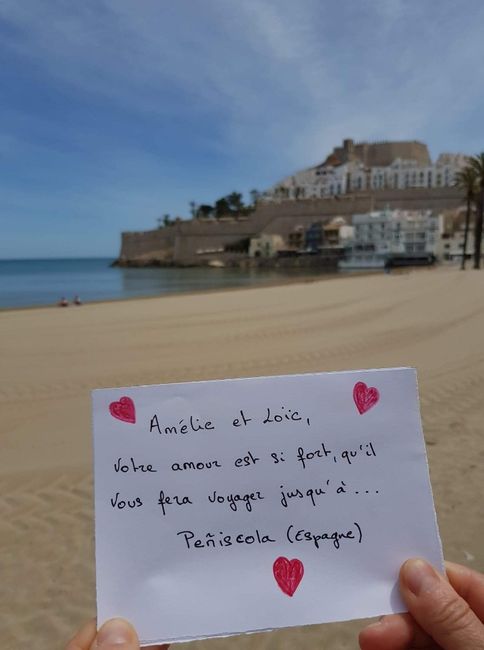 Amélie et Loïc,
Votre amour est si fort, qu'il
vous fera voyager jusqu'à...
Peñiscola (Espagne)